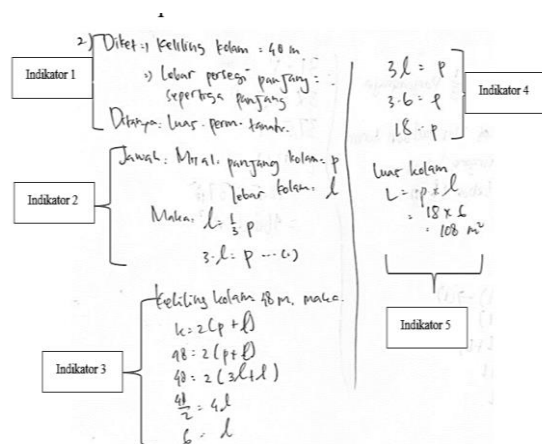 2) Diket => Keliling kolam = 48 m
=> Lebar persegi panjang =
sepertiga panjang
Ditanya = Luas perm.
Indikator 1
Jawab : Misal. panjang kolam = p
lebar kolam = l
Maka, l = 1/3 p
3.l = p ... (1)
Indikator 2
Keliling kolam 48 m, maka.
k = 2(p + l)
48 = 2(p+l)
48 = 2(3l+l)
48/2 = 4l
6 = l
Indikator 3
3.l = p
3.6 = p
18 = p
Indikator 4
Luas kolam
L = p x l
= 18 x 6
= 108 m²
Indikator 5